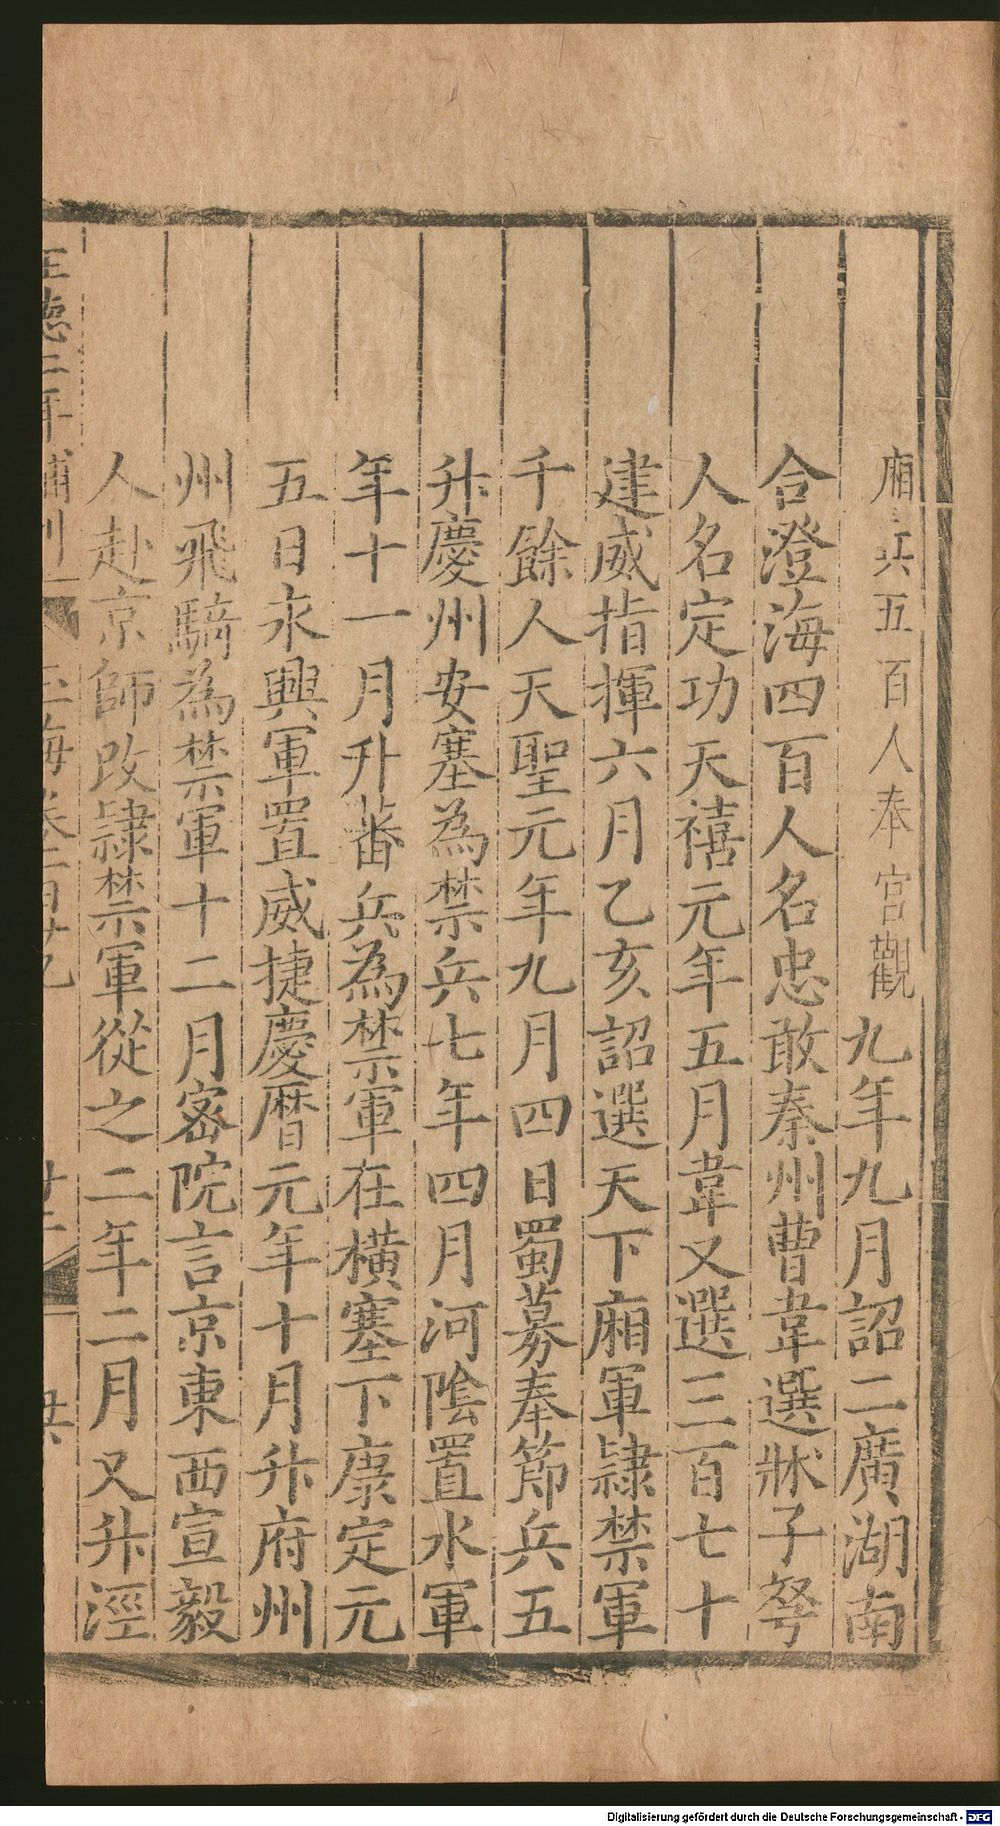 廂兵五百人奉宮觀九年九月詔二廣湖南
合澄海四百人名忠敢秦州曹韋選狀子弩
人名定功天禧元年五月韋又選三百七十
建威指揮六月乙亥詔選天下廂軍隷禁軍
千餘人天聖元年九月四日蜀募奉節兵五
升慶州安塞為禁兵七年四月河陰置水軍
年十一月升蕃兵為禁軍在橫塞下康定元
五日永興軍置威捷慶曆元年十月升府州
州飛騎為禁軍十二月宻院言京東西宣毅
人赴京師改隷禁軍從之二年二月又升涇
正德二年補刊 玉海卷一百卅九
Digitalisierung gefördert durch die Deutsche Forschungsgemeinschaft - DFG